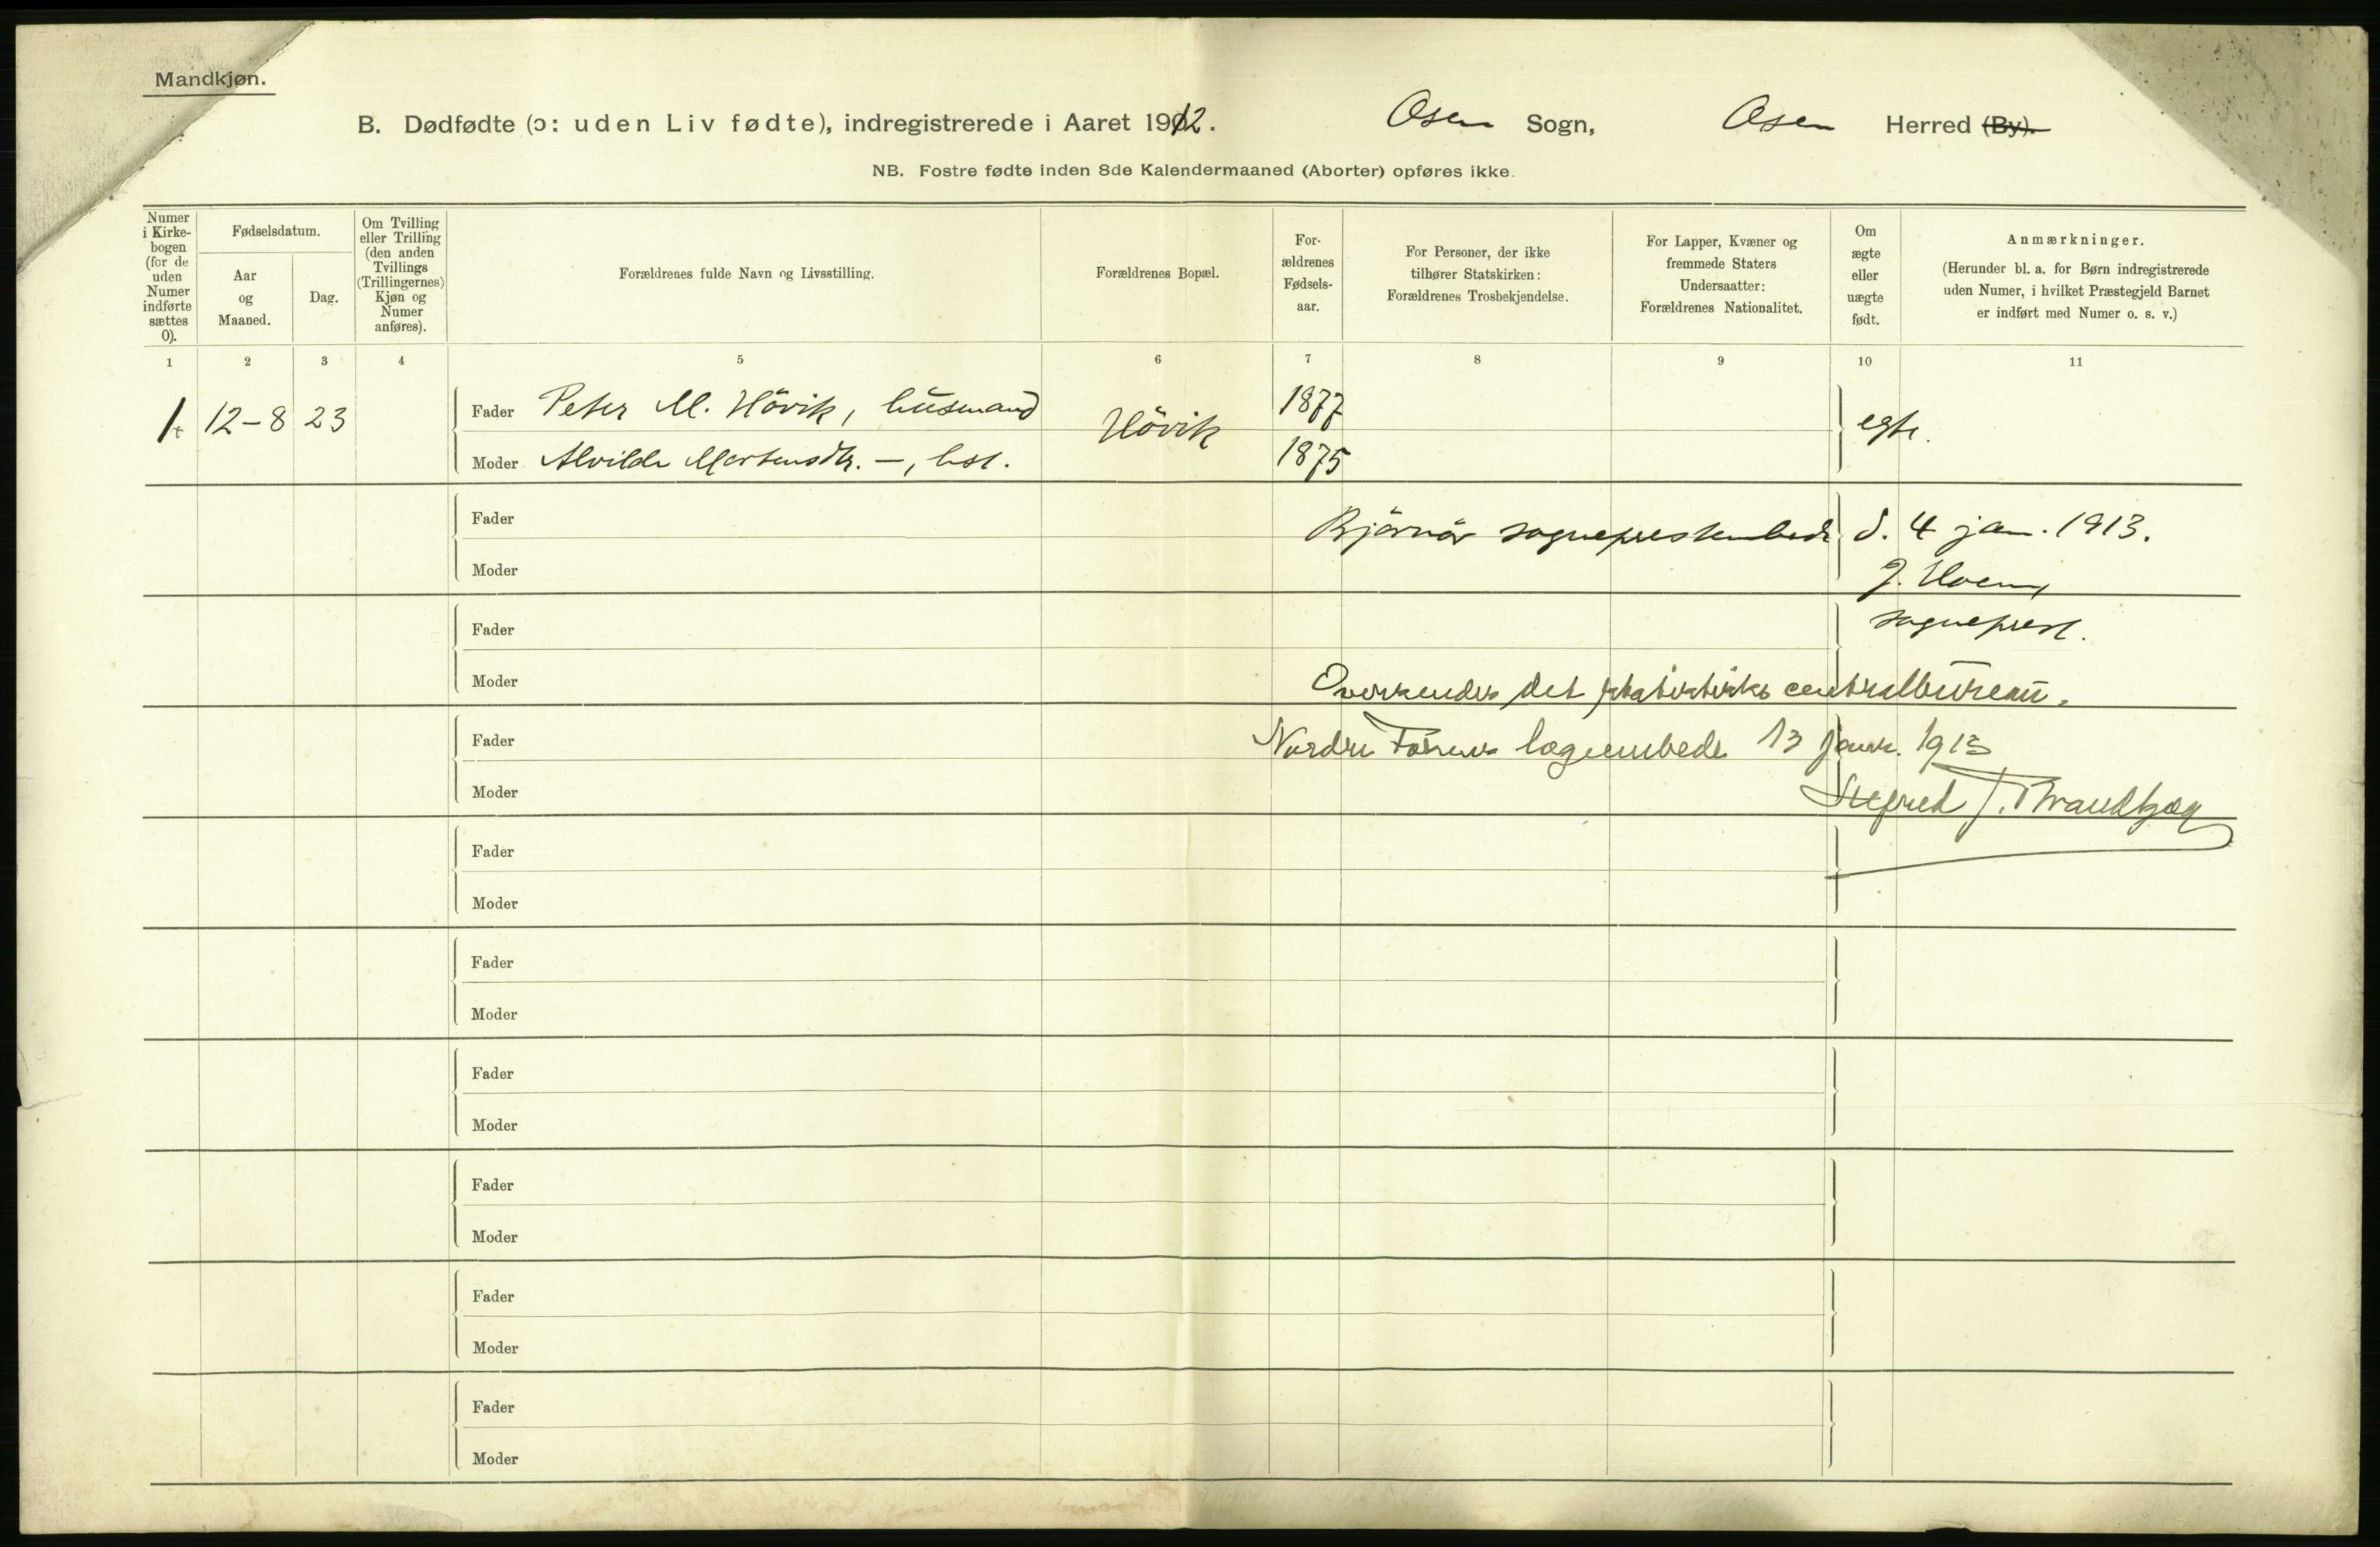 Mandkjøn.
B. Dødfødte (ɔ: uden Liv fødte), indregistrerede i Aaret 1912. Osen Sogn, Osen Herred (By).
NB. Fostre fødte inden 8de Kalendermaaned (Aborter) opføres ikke.
Numer
i Kirke-
bogen
(for de
uden
Numer
indførte
sættes
0).
Fødselsdatum.
Aar
og
Maaned.
Dag.
Om Tvilling
eller Trilling
(den anden
Tvillings
(Trillingernes)
Kjøn og
Numer
anføres).
Forældrenes fulde Navn og Livsstilling.
Forældrenes Bopæl.
For-
ældrenes
Fødsels-
aar.
For Personer, der ikke
tilhører Statskirken:
Forældrenes Trosbekjendelse.
For Lapper, Kvæner og
fremmede Staters
Undersaatter:
Forældrenes Nationalitet.
Om
ægte
eller
uægte
født.
Anmærkninger.
(Herunder bl. a. for Børn indregistrerede
uden Numer, i hvilket Præstegjeld Barnet
er indført med Numer o. s. v.)
1 2 3 4 5 6 7 8 9 10 11
1. 12-8 23 Fader Peter M. Hövik, husmand Hövik 1877 egte.
Moder Alvilde Mortensdtr. —, hst. 1875
Fader
Bjørnör sogneprestembede d. 4 jan. 1913.
Moder
J. Hoem,
sogneprest.
Fader
Moder
Oversendes det statistiske centralbureau.
Fader
Nordre Fosens lægeembede 13 janr. 1913
Moder
Sigfred J. Thrandhjæg
Fader
Moder
Fader
Moder
Fader
Moder
Fader
Moder
Fader
Moder
Fader
Moder